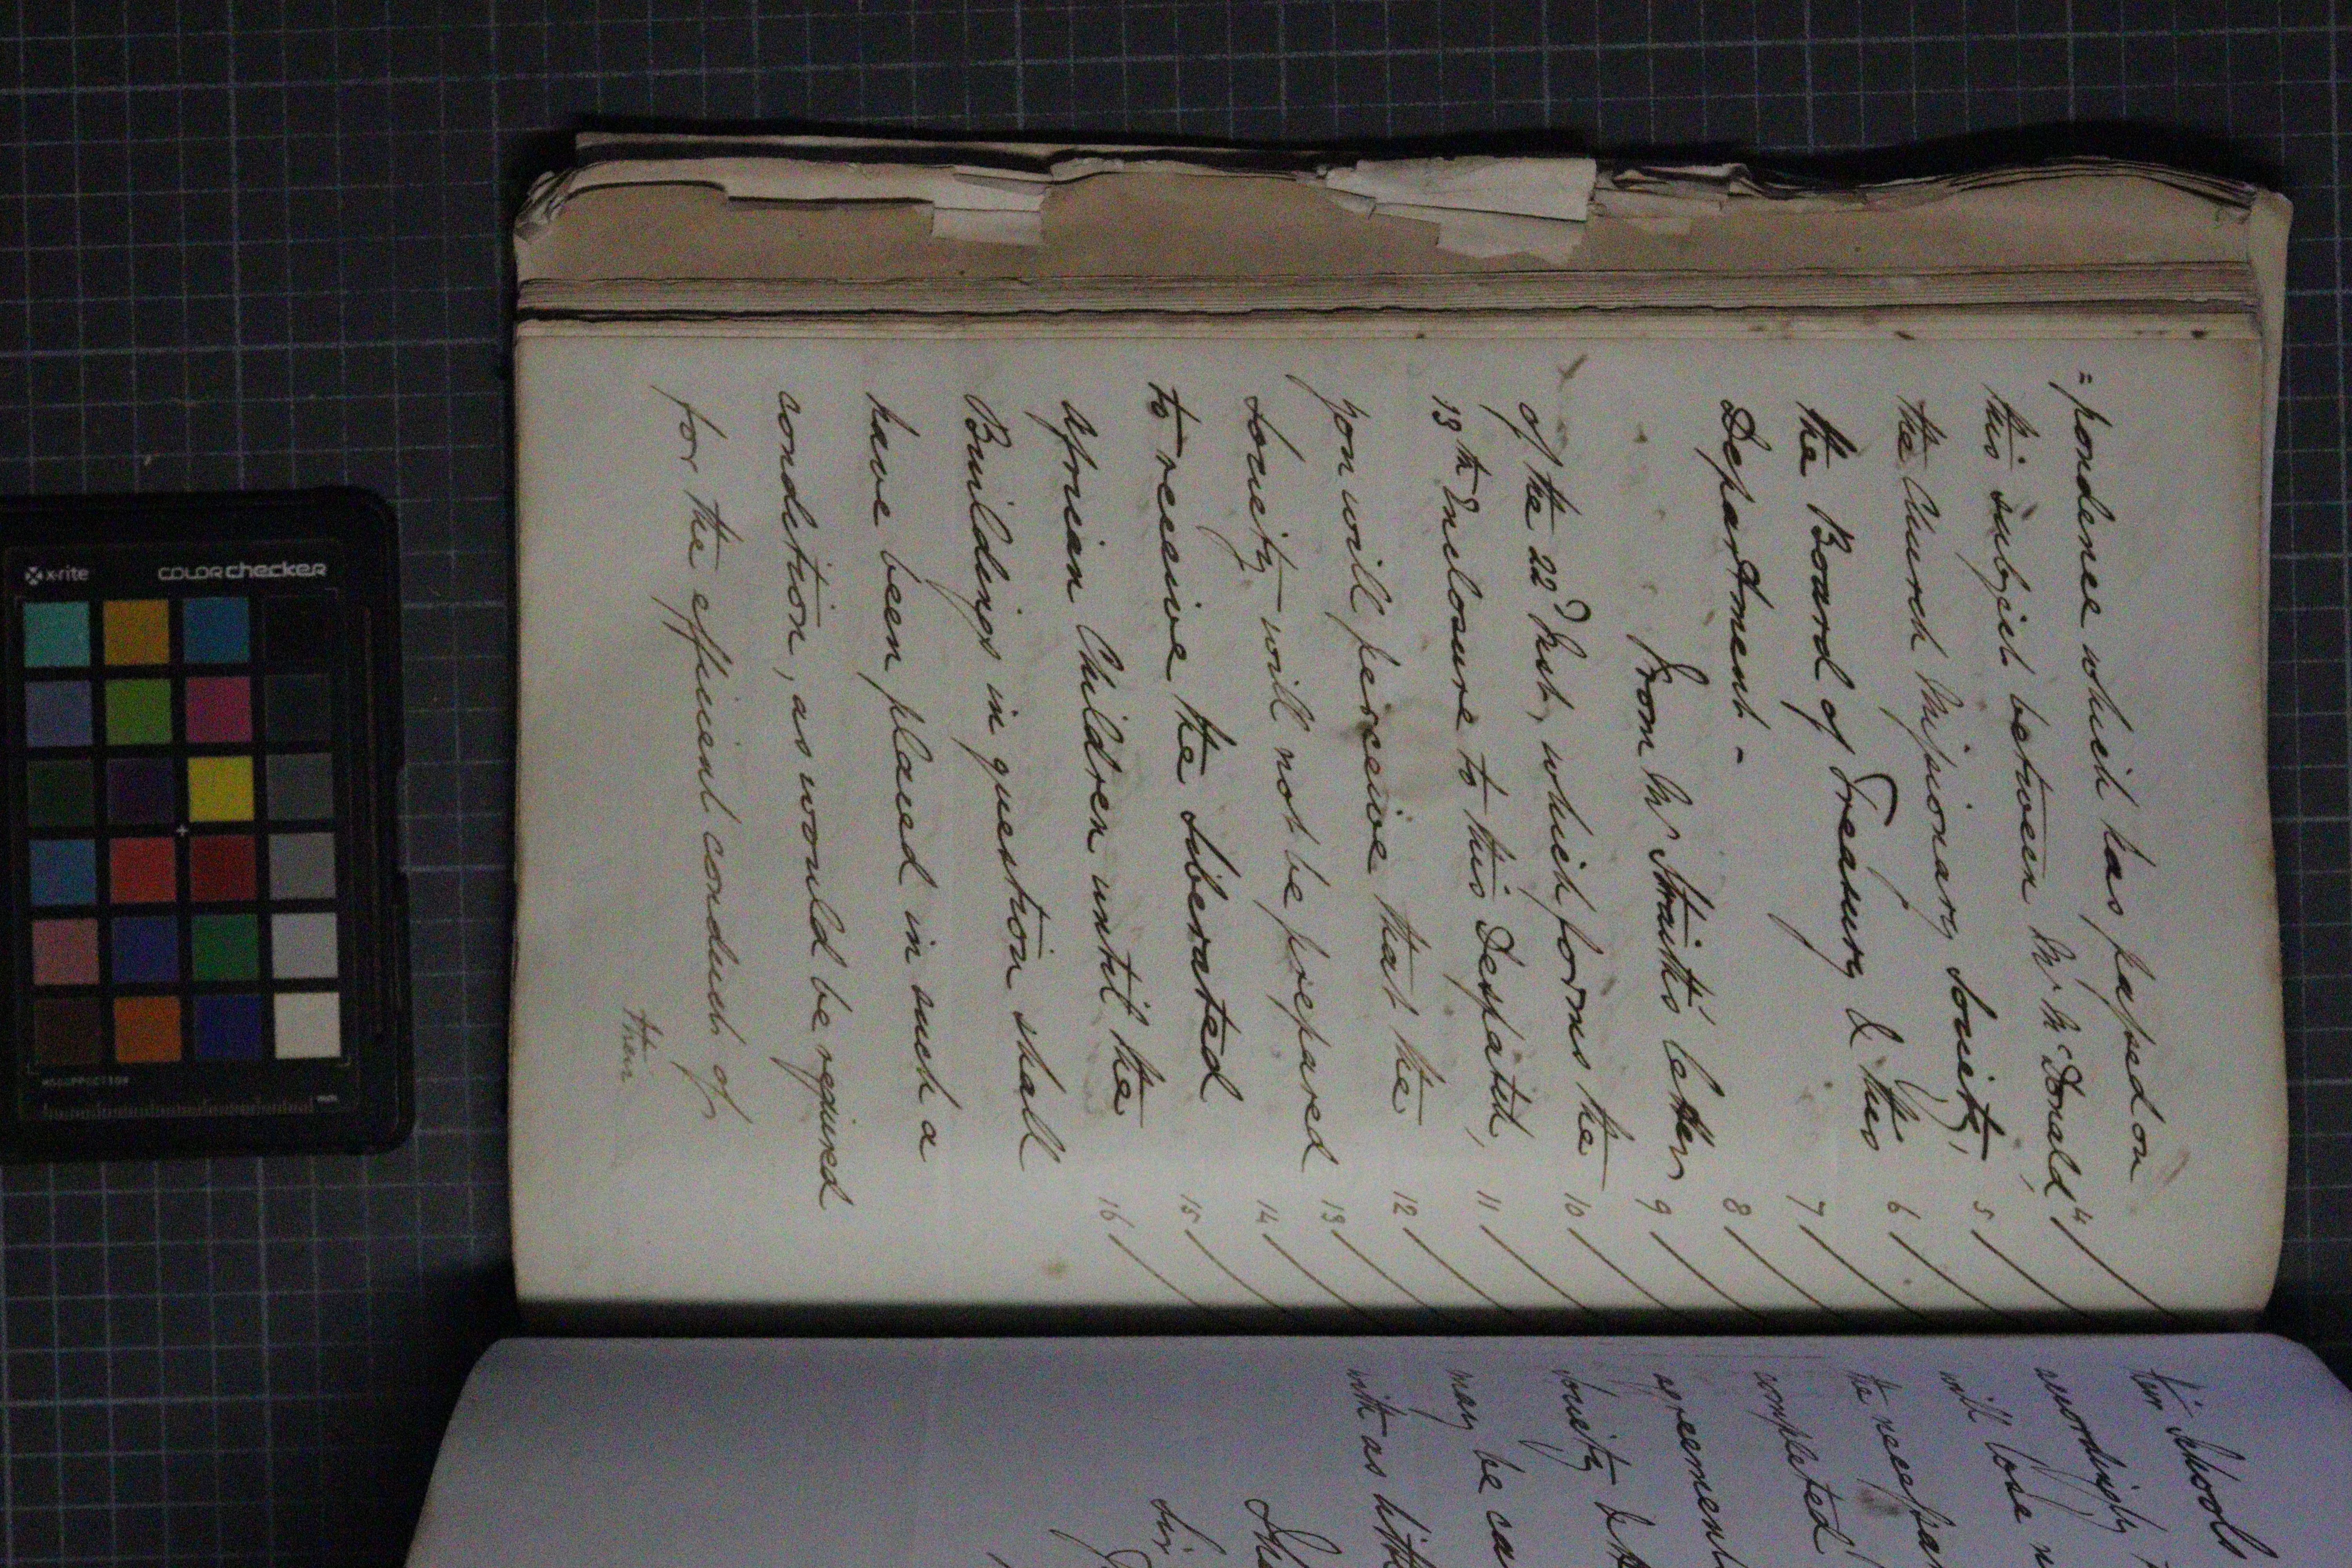 =pondence which has passed on
this subject between Mr McDonald,
the Church Missionary Society,
the Board of Treasury & this
Department.-
From Mr Straith's letter
of the 22d Inst, which forms the
13th Enclosure to this Despatch,
you will perceive that the
Society will not be prepared
to receive the liberated
African Children until the
Buildings in question shall
have been placed in such a
condition, as would be required
for the efficient conduct of
their
4
5
6
7
8
9
10
11
12
13
14
15
16
their Schools
accordingly
will lose n
the necessar
completed
agreement
Society & t
may be ca
with as littl
Sir
x-rite
colorchecker
mm